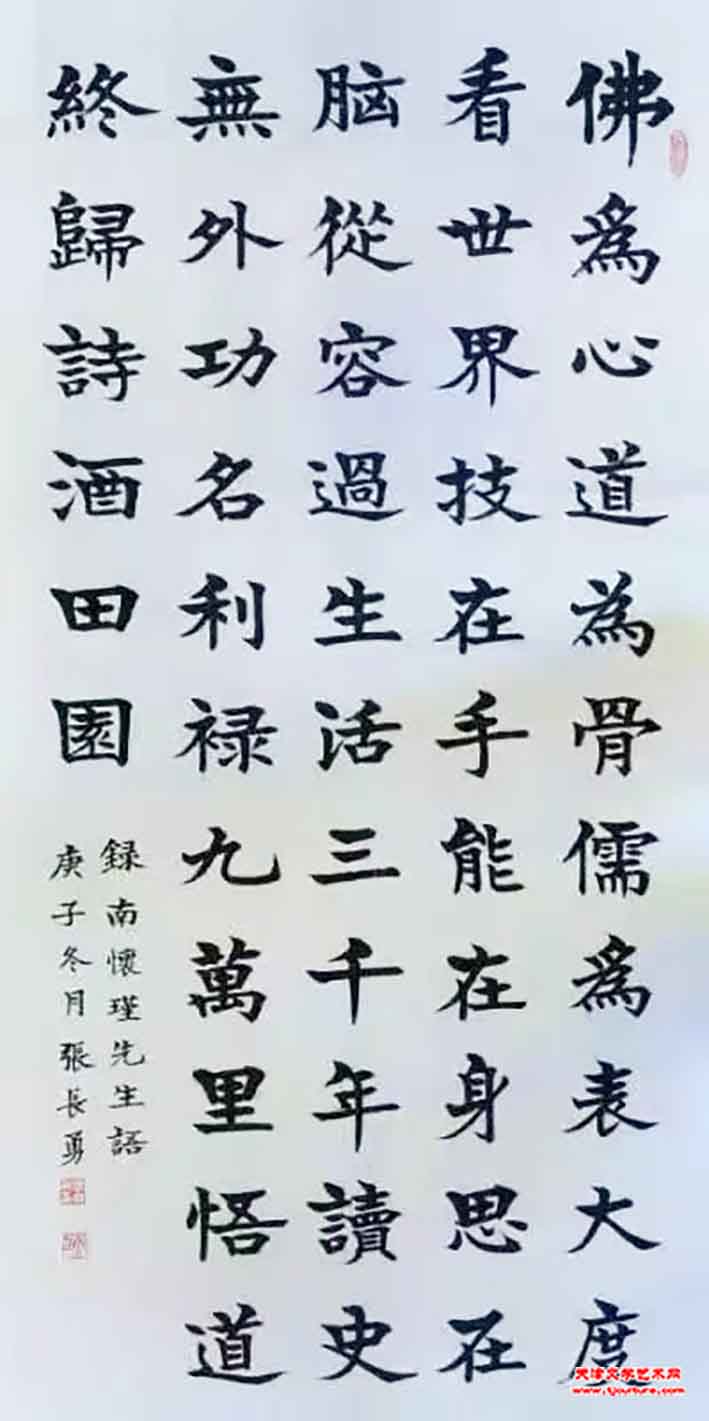 佛為心道為骨儒為表大度
看世界技在手能在身思在
脑從容過生活三千年讀史
無外功名利禄九萬里悟道
終歸詩酒田園
録南懷瑾先生語
庚子冬月張長勇
天津文学艺术网
www.tjculture.com